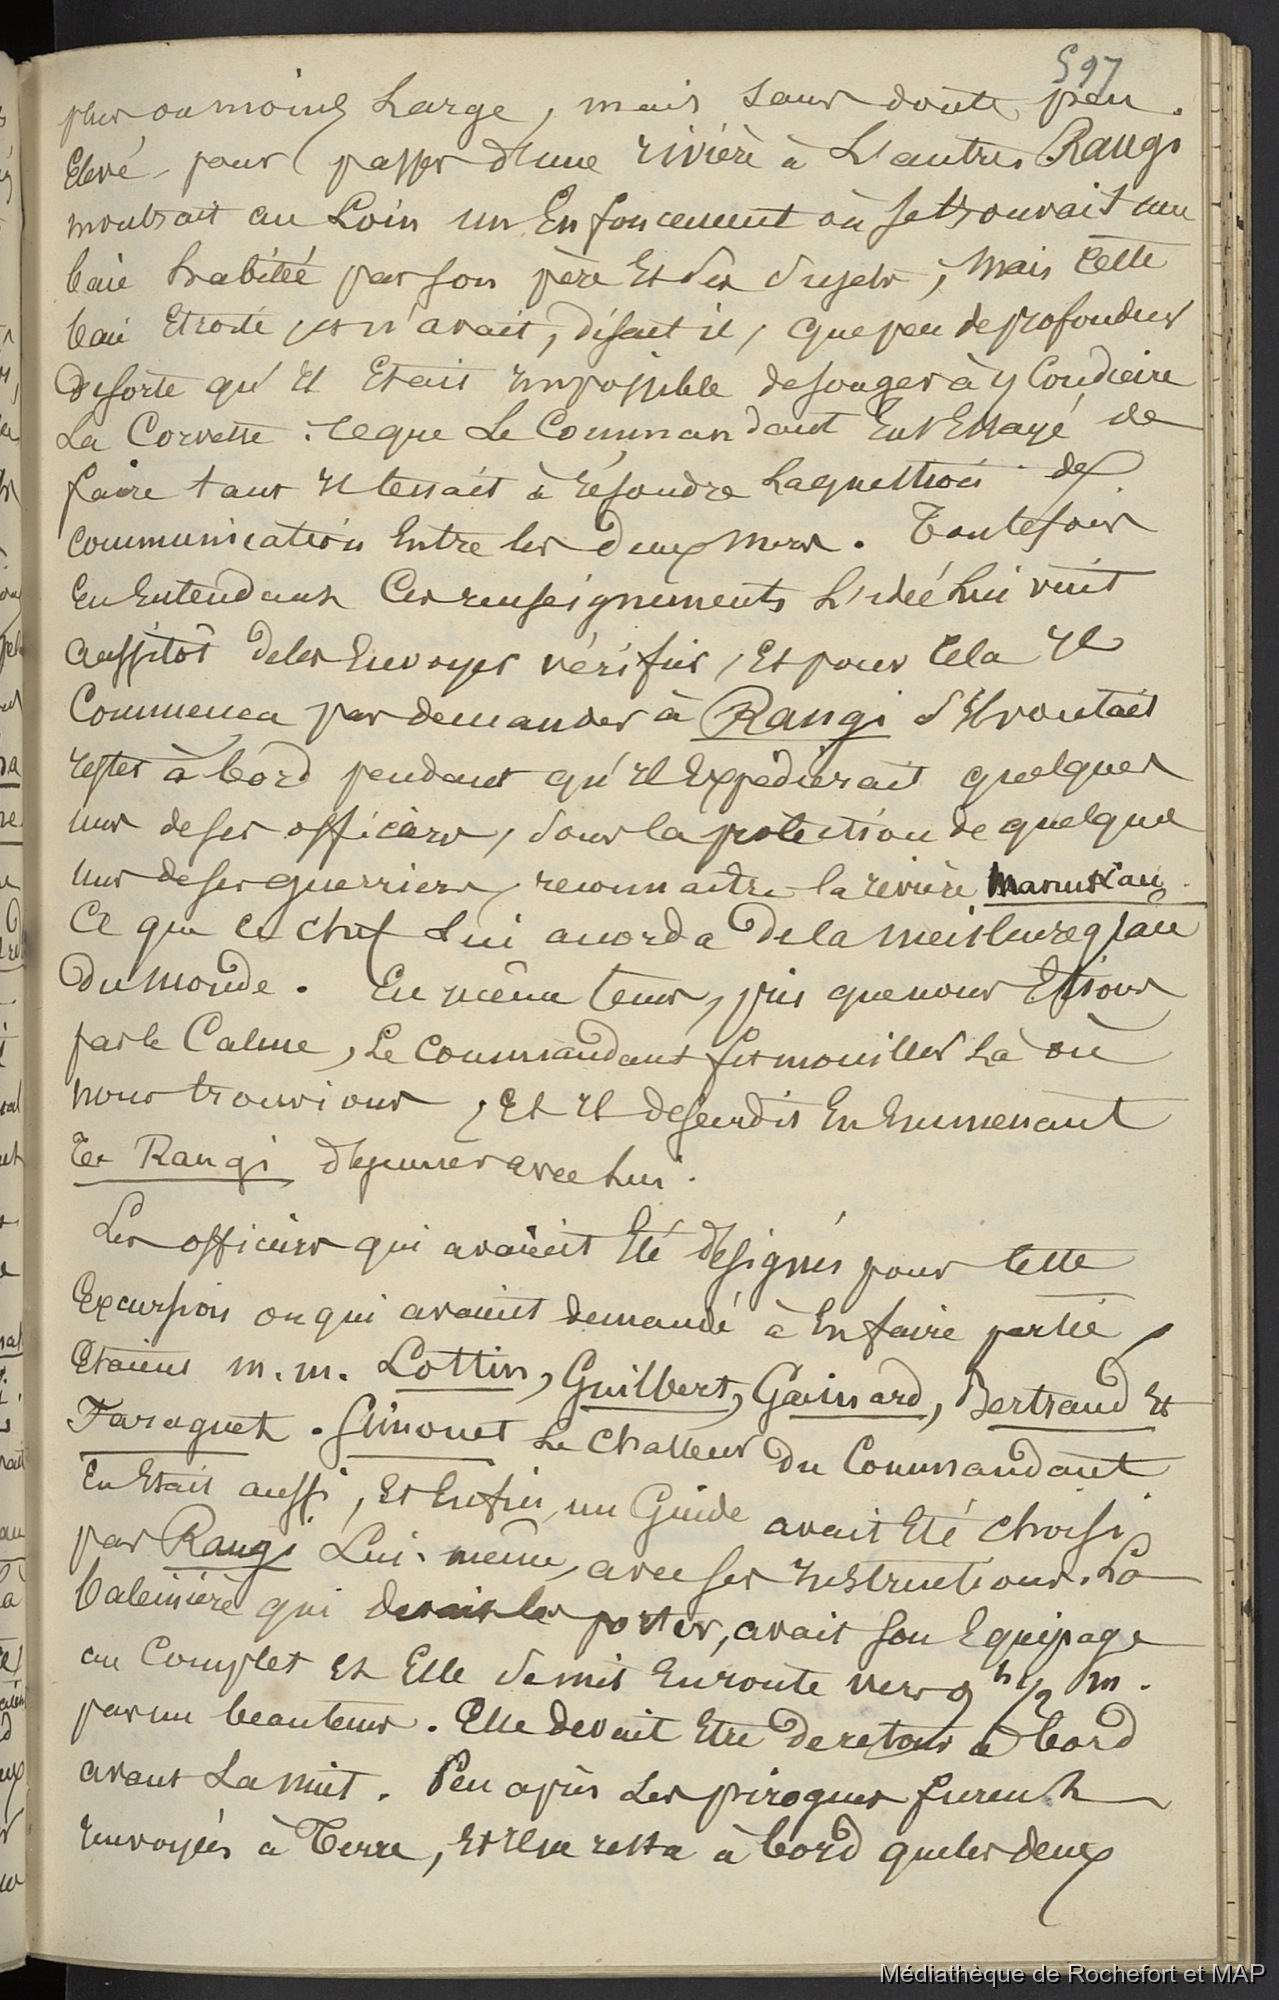 597
plus ou moins Large, mais sans doute peu
Elevé, pour passer d'une rivière à L'autre. Rangi
montrait au Loin un Enfoncement où se trouvait une
baie habitée par son père Et ses sujets, Mais cette
baie Etroite, et n'avait, disait il, que peu de profondeur
De sorte qu'Il Etait Impossible de songer à y Conduire
La Corvette : Ce que Le Commandant Eut Essayé de
faire tant Il tenait à résoudre La question de
communication Entre les deux Mers. Toutefois
En Entendant Ces renseignements L'idée Lui vint
aussitôt de les Envoyer vérifier, Et pour Cela Il
Commenca par demander à Rangi s'Il voulait
rester à bord pendant qu'Il Expédierait quelques
uns de ses officiers, sous la protection de quelques
uns de ses guerriers, reconnaitre la rivière
Ce que ce chef Lui accorda De la meilleure grace
Du Monde. En même tems, puis que nous Etions
par le Calme, Le Commandant fit mouiller Là où
nous trouvions, Et Il descendit En Emmenant
Te Rangi déjeuner avec Lui.
Les officiers qui avaient Eté désignés pour Cette
Excursion ou qui avaient demandé à En faire partie,
Etaient M. M. Lottin, Guilbert, Gaimard, Bertrand Et
Faraguet. Simonet Le Chasseur Du Commandant
En Etait aussi, Et Enfin un Guide avait Eté choisi
par Rangi Lui-même, avec ses Instructions. La
baleinière qui devait les porter, avait son Equipage
au Complet Et Elle se mit En route vers 9 h 1/2 m.
par un beau tems. Elle devait Etre De retour à Bord
avant La nuit. Peu après Les pirogues furent
renvoyées à Terre, Et Il ne resta à bord que les deux
Médiathèque de Rochefort et MAP